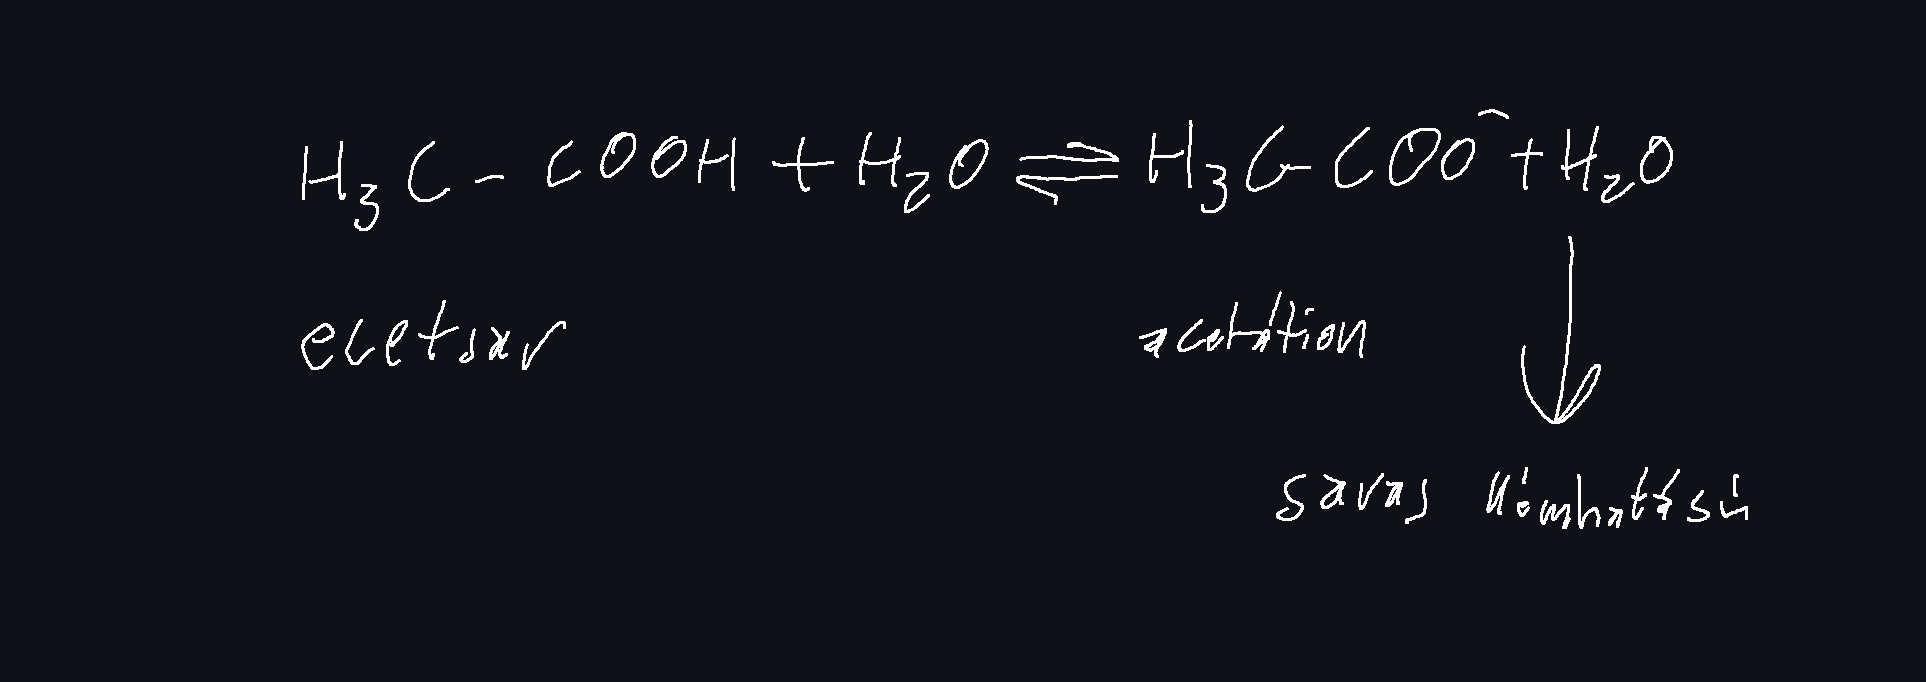 H₃C - COOH + H₂O ⇌ H₃C-COO⁻ + H₂O
ecetsav acetátion
savas kémhatású